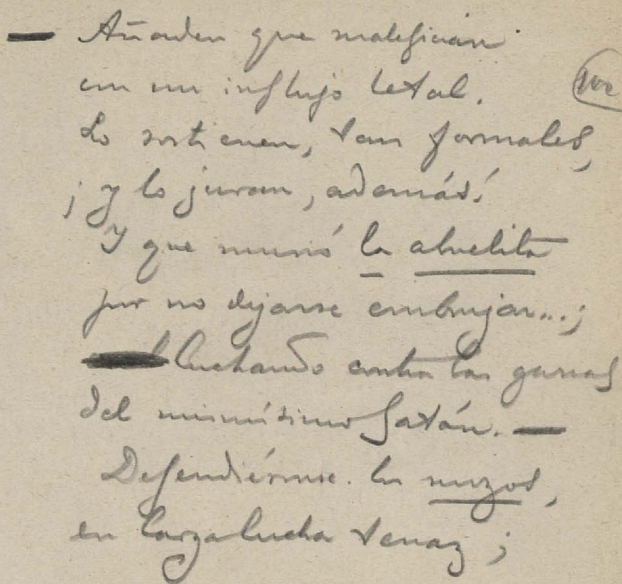 — Añaden que maleficiàn
con un influjo letal.
Lo sostienen, tan formales,
¡y lo juran, además!
Y que murió la abuelita
por no dejarse embrujar...;
luchando contra las garras
del mismísimo Satán. —
Defendiéronse los mozos,
en larga lucha tenaz;